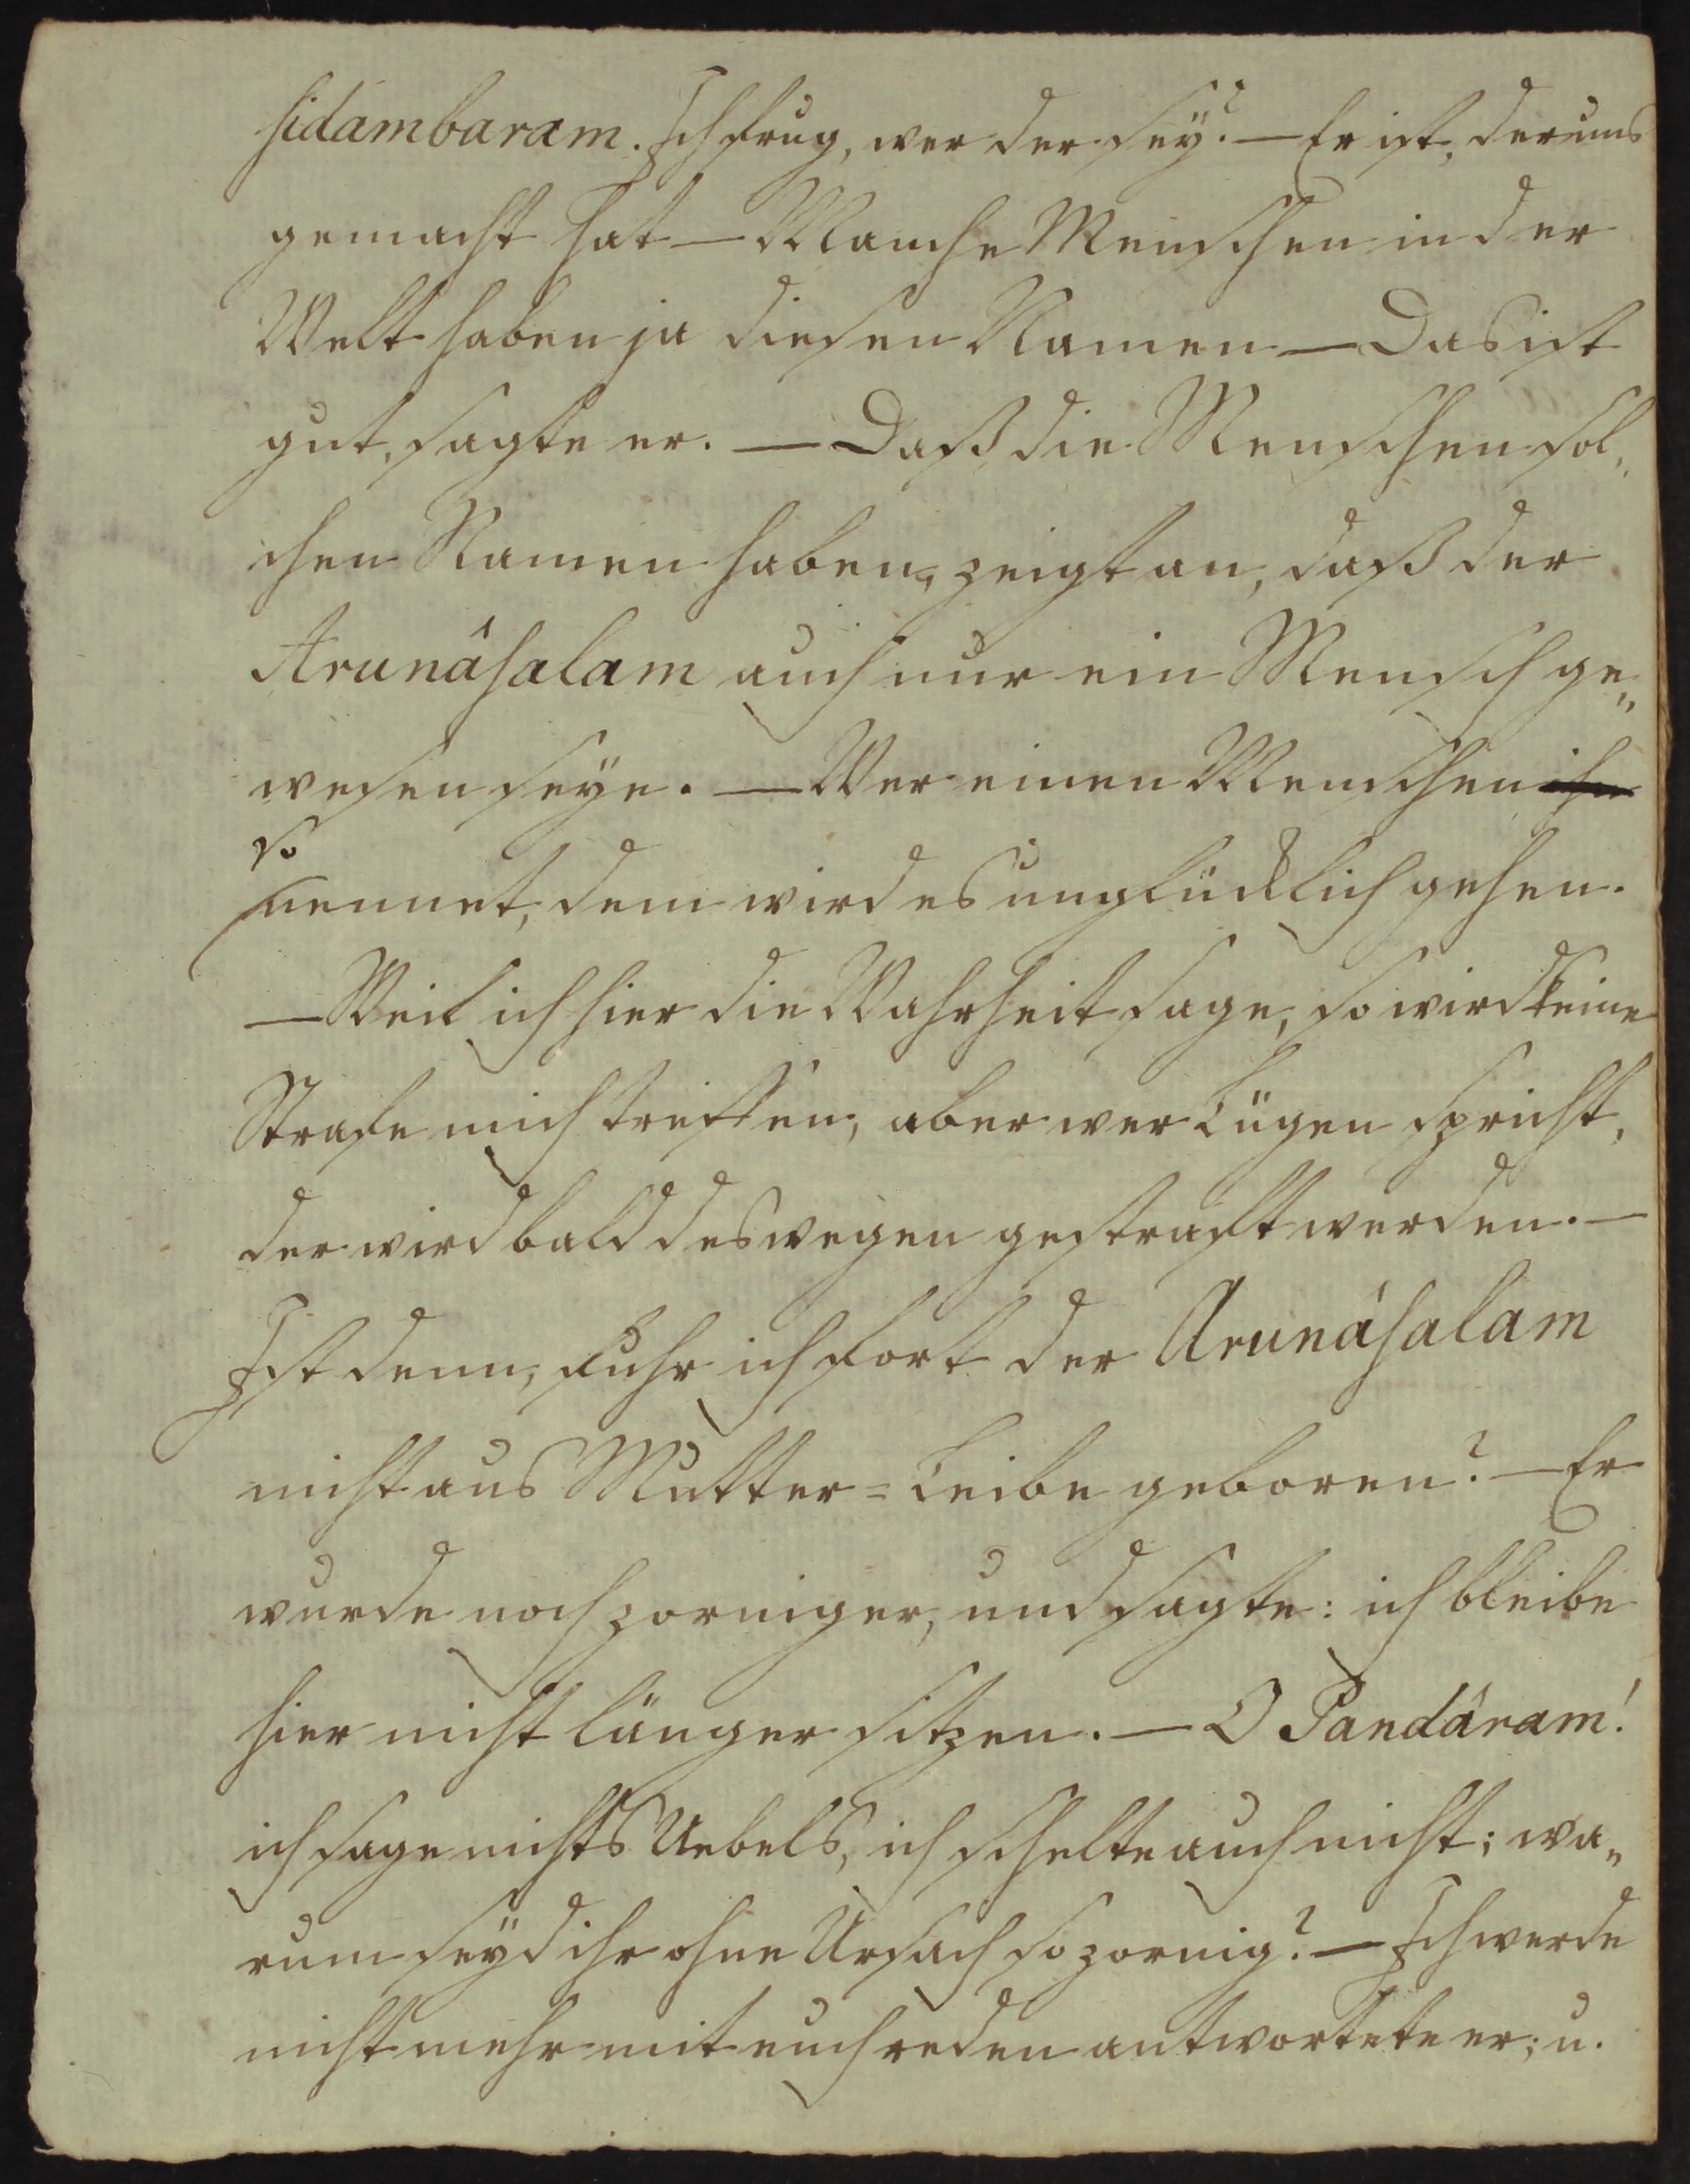 Sidambaram. Ich frug, wer der sey? — Er ist, der uns
gemacht hat — Manche Menschen in der
Welt haben ja diesen Namen — Das ist
gut, sagte er. — Daß die Menschen sol„
chen Namen haben, zeigt an, daß der
Arunâsalam auch nur ein Mensch ge„
wesen seye. — Wer einen Menschen ihn
so
nennet, dem wird es unglücklich gehen.
— Weil ich hier die Wahrheit sage, so wird keine
Strafe mich treffen, aber wer Lügen spricht,
der wird bald deswegen gestraft werden. —
Ist denn, fuhr ich fort der Arunâsalam
nicht aus Mutter=Leibe geboren? — Er
wurde noch zorniger, und sagte: ich bleibe
hier nicht länger sitzen. — O Pandâram!
ich sage nichts Uebels, ich schelte auch nicht; wa„
rum seyd ihr ohne Ursach so zornig? — Ich werde
nicht mehr mit euch reden antwortete er; u.